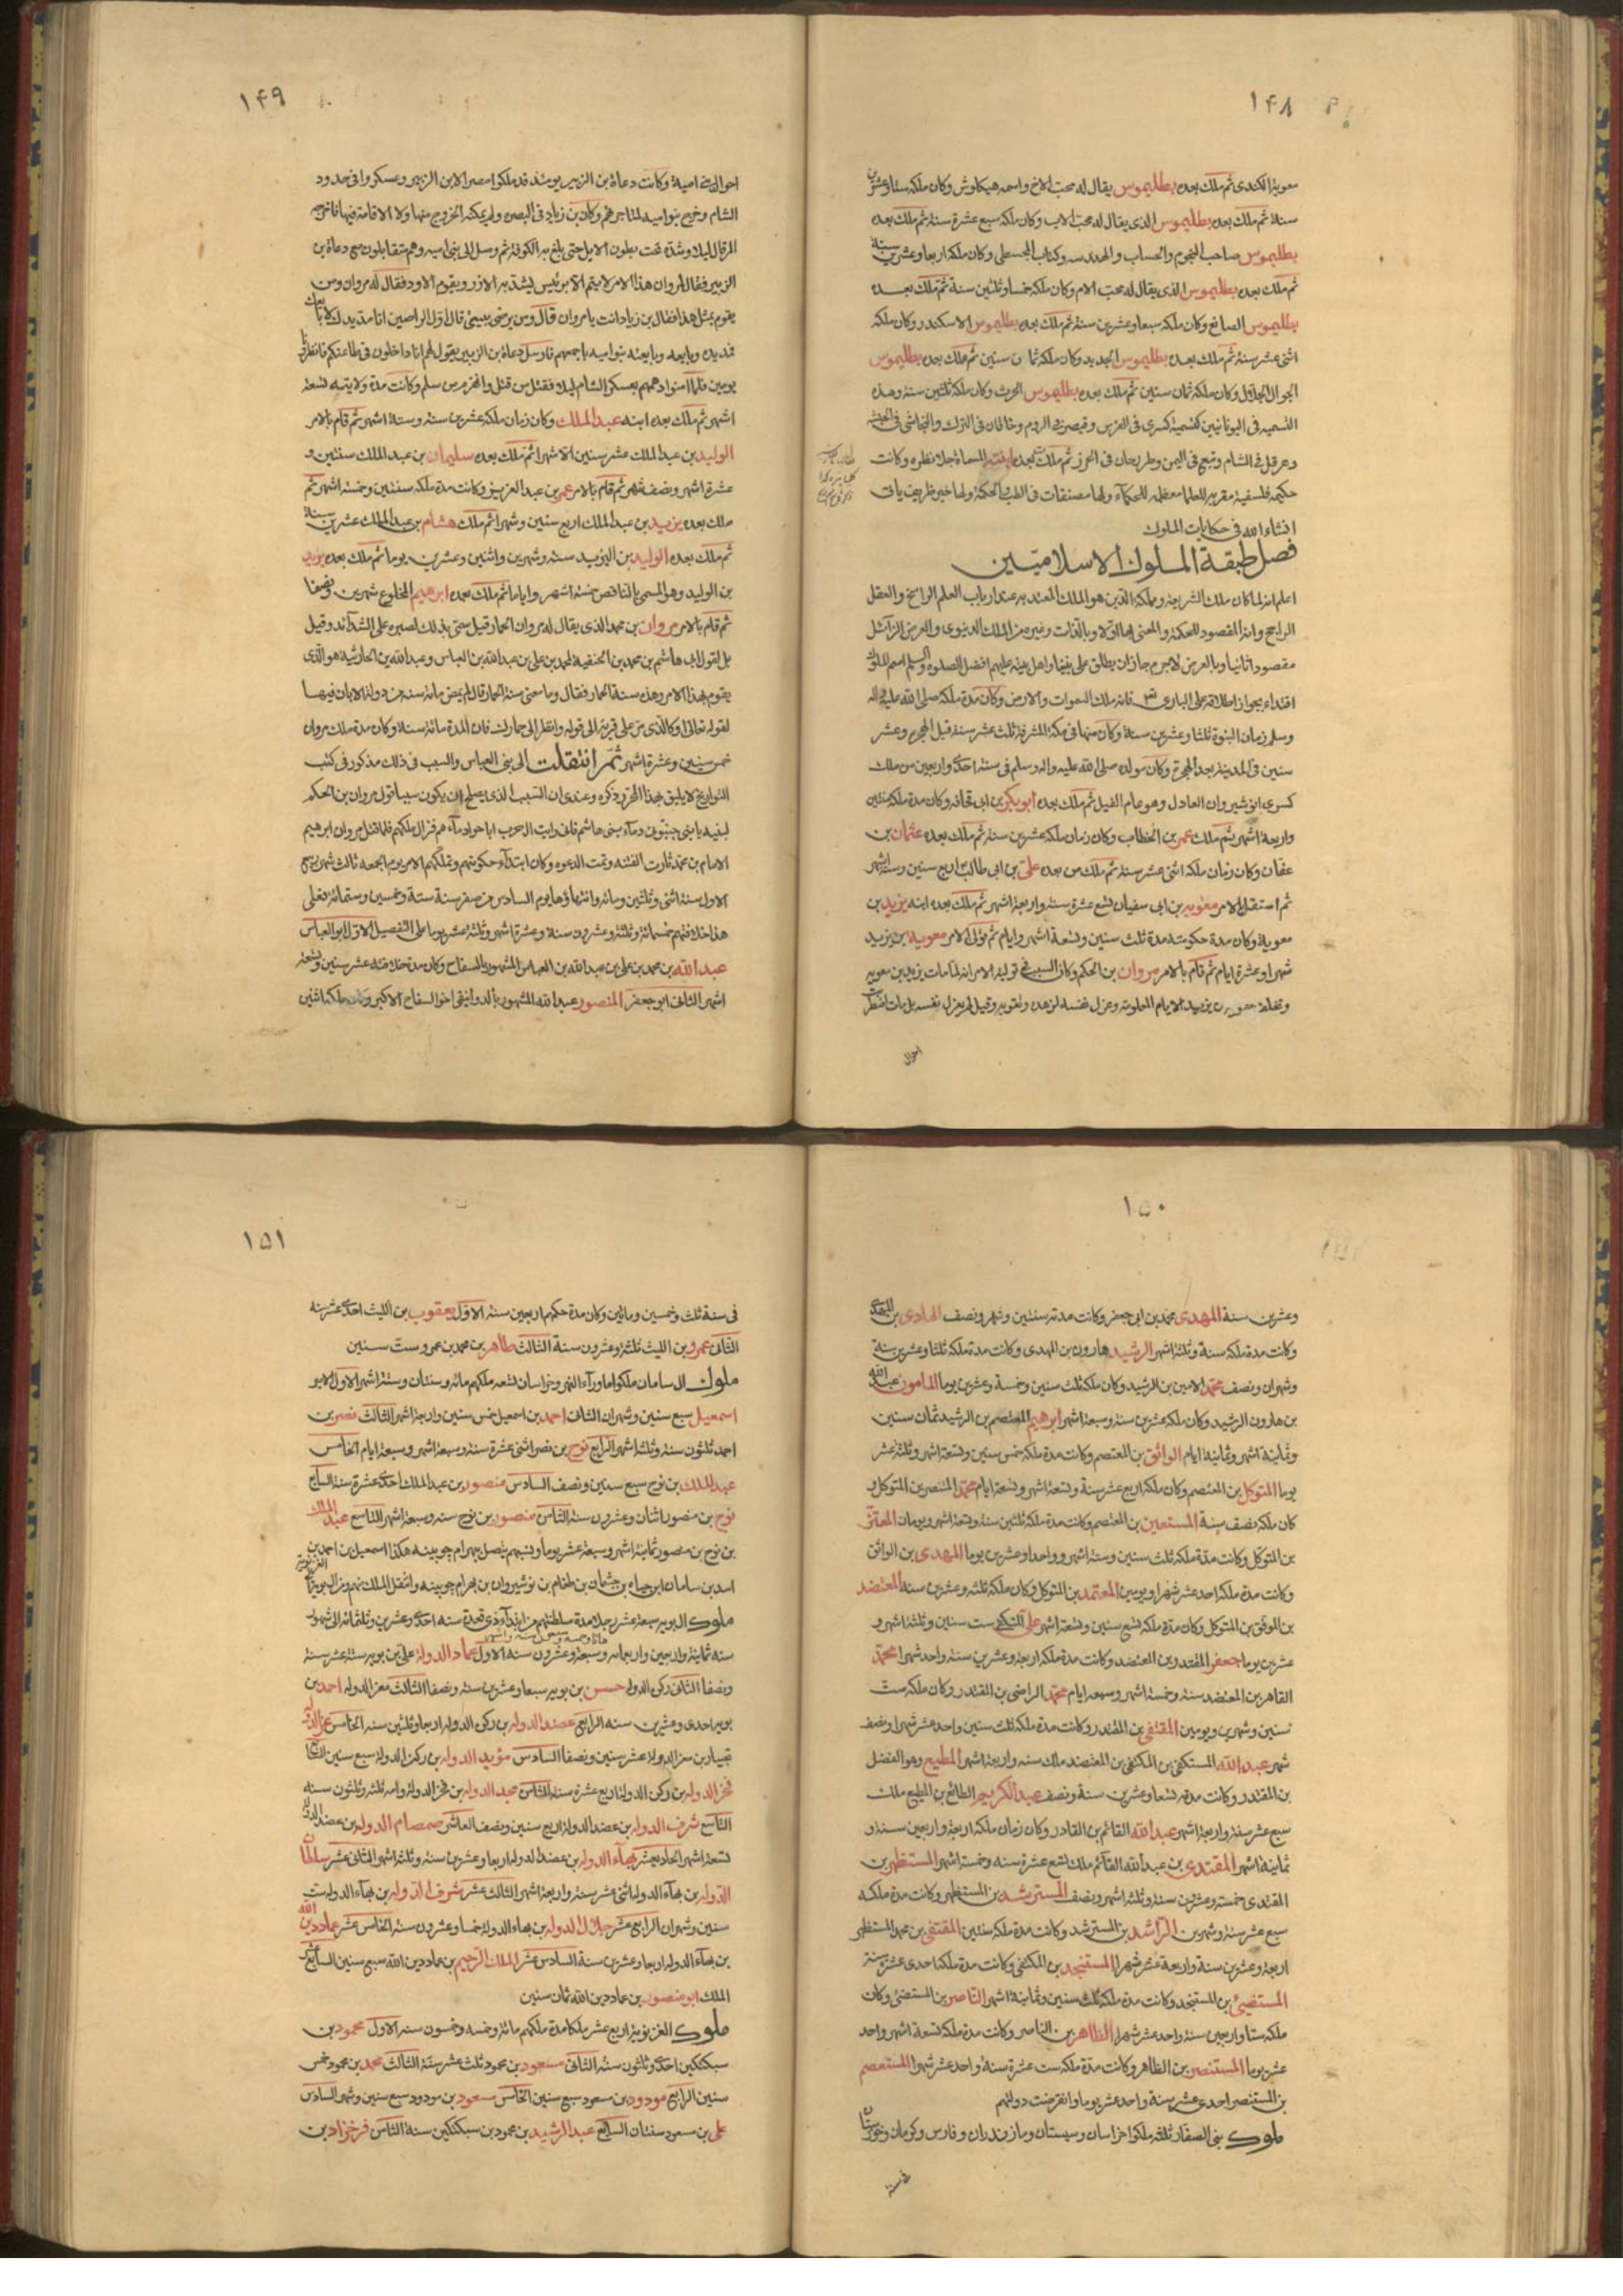 ١٤٨
معوية الكندى ثم ملك بعده بطليموس يقال له محب الاخ واسمه هيكاوش وكان ملكه ستا وعشرين
سنة ثم ملك بعده بطليموس الذى يقال له محب الاب وكان ملكه سبع عشرة سنة ثم ملك بعده
بطليموس صاحب النجوم والحساب والهندسه وكتاب المجسطى وكان ملكه اربعا وعشرين سنة
ثم ملك بعده بطليموس الذى يقال له محب الام وكان ملكه خمسا وثلثين سنة ثم ملك بعده
بطليموس الصانع وكان ملكه سبعا وعشرين سنة ثم ملك بعده بطليموس الاسكندر وكان ملكه
اثنى عشر سنة ثم ملك بعده بطليموس الجديد وكان ملكه ثمان سنين ثم ملك بعده بطليموس
الجوال الجلايل وكان ملكه ثمان سنين ثم ملك بعده بطليموس الحرث وكان ملكه ثلثين سنة وهذه
التسميه فى اليونانيين كتسمية كسرى فى الفرس وقيصر فى الروم وخاقان فى الترك والنجاشى فى الحبشه
وهرقل فى الشام وتبع فى اليمن وطريحان فى الخزر ثم ملكت بعده ابنته المسماة جلا نظره وكانت
حكيمه فلسفية مقربة للعلما معظمه للحكمآء ولها مصنفات فى الطب والحكمة ولها خبر ظريف ياتى
انشاء الله فى حكايات الملوك
فصل طبقة الملوك الاسلاميين
اعلم انه لما كان ملك الشريعه ومملكة الدين هو الملك المعتد به عند ارباب العلم الراسخ والعقل
الراجح وانه المقصود للحكمة والمعنى بها اولا وبالذات وغيره من الملك الدنيوى والعرض الزآئل
مقصود اثانيا وبالعرض لاجرم جاز ان يطلق على نبينا واهل بيته عليهم افضل الصلوة والسلم اسم الملوك
اقتداء بجواز اطلاقه على البارى تعالى فانه ملك السموات والارض وكان مدة ملكه صلى الله عليه واله
وسلم زمان النبوة ثلثا وعشرين سنة وكان منها فى مكة المشرفة ثلث عشر سنة قبل الهجرة وعشر
سنين فى المدينة بعد الهجرة وكان مولده صلى الله عليه واله وسلم فى سنة احدى واربعين من ملك
كسرى انوشيروان العادل وهو عام الفيل ثم ملك بعده ابوبكر بن ابى قحافه وكان مدة ملكه سنتين
واربعة اشهر ثم ملك عمر بن الخطاب وكان زمان ملكه عشرين سنة ثم ملك بعده عثمان بن
عفان وكان زمان ملكه اثنى عشر سنة ثم ملك من بعده على بن ابى طالب اربع سنين وستة اشهر
ثم استقل الامر معويه بن ابى سفيان تسع عشرة سنة واربعة اشهر ثم ملك بعده ابنه يزيد بن
معوية وكان مدة حكومته مدة ثلث سنين وتسعة اشهر وايام ثم تولى الامر معوية بن يزيد
شهرا وعشرة ايام ثم قام بالامر مروان بن الحكم وكان السبب فى توليه الامر انه لما مات يزيد بن معويه
وتخلف معوية بن يزيد الايام المعلومة وعزل نفسه لزهده وتقويه وقيل لم يعزل نفسه بل مات اضطربت
احوال
١٤٩
احوال بنى امية وكانت دعاة بن الزبير يومئذ قد ملكوا مصر الا بن الزبير وعسكروا فى حدود
الشام وخرج بنو اميه لمتاجرهم وكان بن زياد فى البصره ولم يمكنه الخروج منها ولا الاقامة فيها فاخرجه
المرقال ليلا وشده تحت بطون الابل حتى بلغ به الكوفة ثم وصل الى بنى اميه وهم متقابلون مع دعاة بن
الزبير فقال لمروان هذا الامر لا يتم الا برئيس يشد به الازر ويقوم الاود فقال له مروان ومن
يقوم بمثل هذا فقال بن زياد انت يا مروان قال ومن يرضى ببيعتى قال اول الراضين انا مد يدك لابايعك
فمد يده وبايعه وبايعته بنو اميه باجمعهم فارسل دعاة بن الزبير يقول لهم انا داخلون فى طاعتكم فانظرونا
يومين فلما امنوا دهمهم بعسكر الشام ليلا فقتل من قتل وانهزم من سلم وكانت مدة ولايته تسعة
اشهر ثم ملك بعده ابنه عبد الملك وكان زمان ملكه عشرين سنة وستة اشهر ثم قام بالامر
الوليد بن عبد الملك عشر سنين الا شهرا ثم ملك بعده سليمان بن عبد الملك سنتين و
عشرة اشهر ونصف شهر ثم قام بالامر عمر بن عبد العزيز وكانت مدة ملكه سنتين وخمسة اشهر ثم
ملك بعده يزيد بن عبد الملك اربع سنين وشهرا ثم ملك هشام بن عبد الملك عشرين سنة
ثم ملك بعده الوليد بن اليزيد سنة وشهرين واثنين وعشرين يوما ثم ملك بعده يزيد
بن الوليد وهو المسمى بالناقص خمسة اشهر واياما ثم ملك بعده ابرهيم المخلوع شهرين ونصفا
ثم قام بالامر مروان بن محمد الذى يقال له مروان الحمار قيل سمى بذلك لصبره على الشدآئد وقيل
بل لقول ابى هاشم بن محمد بن الحنفية لمحمد بن على بن عبد الله بن العباس وعبد الله بن الحارثية هو الذى
يقوم بهذا الامر وهذه سنة الحمار فقال وما معنى سنة الحمار قال لم يمض مائة سنة من دولة الا بان فيها
لقوله تعالى او كالذى مر على قرية الى قوله وانظر الى حمارك فان المدة مائة سنة وكان مدة ملك مروان
خمس سنين وعشرة اشهر ثم انتقلت الى بنى العباس والسبب فى ذلك مذكور فى كتب
التواريخ لا يليق بهذا المختصر ذكره وعندى ان السبب الذى يصلح ان يكون سببا قول مروان بن الحكم
لبنيه يا بنى جنبونى دمآء بنى هاشم فانى رايت ال حرب اباحوا دمآءهم فزال ملكهم فلما قتل مروان ابرهيم
الامام بن محمد ثارت الفتنه وتمت الدعوه وكان ابتدآء حكومتهم وتملكهم الامر يوم الجمعه ثالث شهر ربيع
الاول سنة اثنى وثلثين ومائه وانتهاؤها يوم السادس من صفر سنة ستة وخمسين وستمائة فعلى
هذا خلافتهم خمسمائة وثلثة وعشرون سنة وعشرة اشهر وثلثة عشر يوما على التفصيل الاول ابو العباس
عبد الله بن محمد بن على بن عبد الله بن العباس المشهور بالسفاح وكان مدة خلافته عشر سنين وتسعة
اشهر الثانى ابو جعفر المنصور عبد الله المشهور بالدوانيقى اخو السفاح الاكبر وكان ملكه اثنين
١٥٠
وعشرين سنة المهدى محمد بن ابى جعفر وكانت مدته سنتين وشهر ونصف الهادى بن المهدى
وكانت مدة ملكه سنة وثلثة اشهر الرشيد هارون بن المهدى وكانت مدة ملكه ثلثا وعشرين سنة
وشهران ونصف محمد الامين بن الرشيد وكان ملكه ثلث سنين وخمسة وعشرين يوما المامون عبد الله
بن هارون الرشيد وكان ملكه عشرين سنة وسبعة اشهر ابرهيم المعتصم بن الرشيد ثمان سنين
وثمانية اشهر وثمانية ايام الواثق بن المعتصم وكانت مدة ملكه خمس سنين وتسعة اشهر وثلثة عشر
يوما المتوكل بن المعتصم وكان ملكه اربع عشر سنة وتسعة اشهر وتسعة ايام محمد المنتصر بن المتوكل و
كان ملكه نصف سنة المستعين بن المعتصم وكانت مدة ملكه ثلثين سنة وتسعة اشهر ويومان المعتز
بن المتوكل وكانت مدة ملكه ثلث سنين وستة اشهر وواحدا وعشرين يوما المهدى بن الواثق
وكانت مدة ملكه احد عشر شهرا ويومين المعتمد بن المتوكل وكان ملكه ثلثه وعشرين سنة المعتضد
بن الموفق بن المتوكل وكان مدة ملكه تسع سنين وتسعة اشهر على المكتفى ست سنين وثلثة اشهر و
عشرين يوما جعفر المقتدر بن المعتضد وكانت مدة ملكه اربعة وعشرين سنة واحد شهرا محمد
القاهر بن المعتضد سنة وخمسة اشهر وسبعه ايام محمد الراضى بن المقتدر وكان ملكه ست
سنين وشهرين ويومين المقتفى بن المقتدر وكانت مدة ملكه ثلث سنين واحد عشر شهرا ونصف
شهر عبد الله المستكفى بن المكتفى بن المعتضد ملك سنه واربعة اشهر المطيع وهو الفضل
بن المقتدر وكانت مدته تسعا وعشرين سنة ونصف عبد الكريم الطائع بن المطيع ملك
سبع عشر سنة واربعة اشهر عبد الله القائم بن القادر وكان زمان ملكه اربعة واربعين سنة و
ثمانية اشهر المقتدى بن عبد الله القآئم ملك تسع عشرة سنه وخمسة اشهر المستظهر بن
المقتدى خمسة وعشرين سنة وثلثة اشهر ونصف المسترشد بن المستظهر وكانت مدة ملكه
سبع عشر سنة وشهرين الراشد بن المسترشد وكانت مدة ملكه سنتين المقتفى بن محمد المستظهر
اربعة وعشرين سنة واربعة عشر شهرا المستنجد بن المكتفى وكانت مدة ملكه احدى عشرة سنة
المستضئ بن المستنجد وكانت مدة ملكه ثلث سنين وثمانية اشهر الناصر بن المستضئ وكان
ملكه ستا واربعين سنة واحد عشر شهرا الظاهر بن الناصر وكانت مدة ملكه تسعة اشهر واحد
عشر يوما المستنصر بن الظاهر وكانت مدة ملكه ست عشرة سنة واحد عشر شهرا المستعصم
بن المستنصر احدى عشر سنة واحد عشر يوما وانقرضت دولتهم
ملوك بنى الصفار ثلثه ملكوا خراسان وسيستان ومازندران وفارس وكرمان وخوزستان
فى سنة
١٥١
فى سنة ثلث وخمسين ومائين وكان مدة حكمهم اربعين سنة الاول يعقوب بن الليث احدى عشر سنه
الثانى عمرو بن الليث ثلثة وعشرون سنة الثالث طاهر بن محمد بن عمرو ست سنين
ملوك ال سامان ملكوا ماورآء النهر وخراسان تسعه ملكهم مائه وسنتان وستة اشهر الاول الامير
اسمعيل سبع سنين وشهران الثانى احمد بن اسمعيل خمس سنين واربعة اشهر الثالث نصر بن
احمد ثلثون سنة وثلثة اشهر الرابع نوح بن نصر اثنى عشرة سنة وسبعة اشهر وسبعة ايام الخامس
عبد الملك بن نوح سبع سنين ونصف السادس منصور بن عبد الملك احدى عشرة سنة السابع
نوح بن منصور اثنان وعشرون سنة الثامن منصور بن نوح سنه وسبعة اشهر التاسع عبد الملك
بن نوح بن منصور ثمانية اشهر وسبعة عشر يوما ونسبهم يتصل ببهرام چوبينه هكذا اسمعيل بن احمد بن
اسد بن سامان ابن جباه بن جثمان بن طغام بن نوشيروان بن بهرام چوبينه وانتقل الملك منهم الى
ملوك ال بويه سبعة عشر رجلا مدة سلطنتهم من ابتدآء ذى قعدة سنه احدى وعشرين وثلثمائه الى شهور
سنه ثمانية واربعين واربعمائه وسبعة وعشرون سنه الاول عماد الدولة على بن بويه ستة عشر سنة
ونصفا الثانى ركن الدوله حسن بن بويه سبعا وعشرين سنة ونصفا الثالث معز الدوله احمد بن
بويه احدى وعشرين سنه الرابع عضد الدوله بن ركن الدوله اربعا وثلثين سنه الخامس عز الدوله
بختيار بن معز الدولة عشر سنين ونصفا السادس مؤيد الدوله بن ركن الدولة سبع سنين السابع
فخر الدوله بن ركن الدولة اربع عشرة سنة الثامن مجد الدوله بن فخر الدوله وامه ثلثه وثلثون سنه
التاسع شرف الدوله بن عضد الدولة اربع سنين ونصف العاشر صمصام الدوله بن عضد الدوله
تسعة اشهر الحاد يعشر بهآء الدوله بن عضد الدوله اربعا وعشرين سنة وثلثة اشهر الثانى عشر سلطان
الدوله بن بهآء الدوله اثنى عشر سنة واربعة اشهر الثالث عشر شرف الدوله بن بهآء الدوله ست
سنين وشهران الرابع عشر جلال الدوله بن بهاء الدولة خمسا وعشرون سنة الخامس عشر عماد دين الله
بن بهآء الدوله اربعا وعشرين سنة السادس عشر الملك الرحيم بن عماد دين الله سبع سنين السابع عشر
الملك ابو منصور بن عماد دين الله ثمان سنين
ملوك الغزنوية اربع عشر ملكا مدة ملكهم مائة وخمسه وخمسون سنه الاول محمود بن
سبكتكين احدى وثلثون سنة الثانى مسعود بن محمود ثلث عشر سنة الثالث محمد بن محمود خمس
سنين الرابع مودود بن مسعود سبع سنين الخامس مسعود بن مودود سبع سنين وشهر السادس
على بن مسعود سنتان السابع عبد الرشيد بن محمود بن سبكتكين سنة الثامن فرخزاد بن